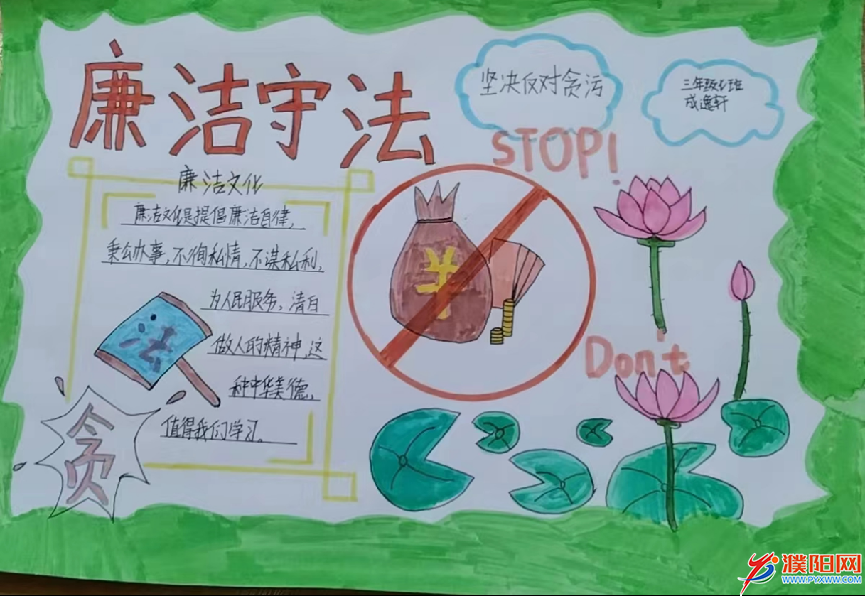 廉洁守法
坚决反对贪污
三年级6班
成逸轩
STOP!
廉洁文化
廉洁文化是提倡廉洁自律,
秉公办事,不徇私情,不谋私利,
为人民服务,清白
做人的精神,这
种中华美德,
值得我们学习。
法
贪
Don't
濮阳网
WWW.PYXWW.COM